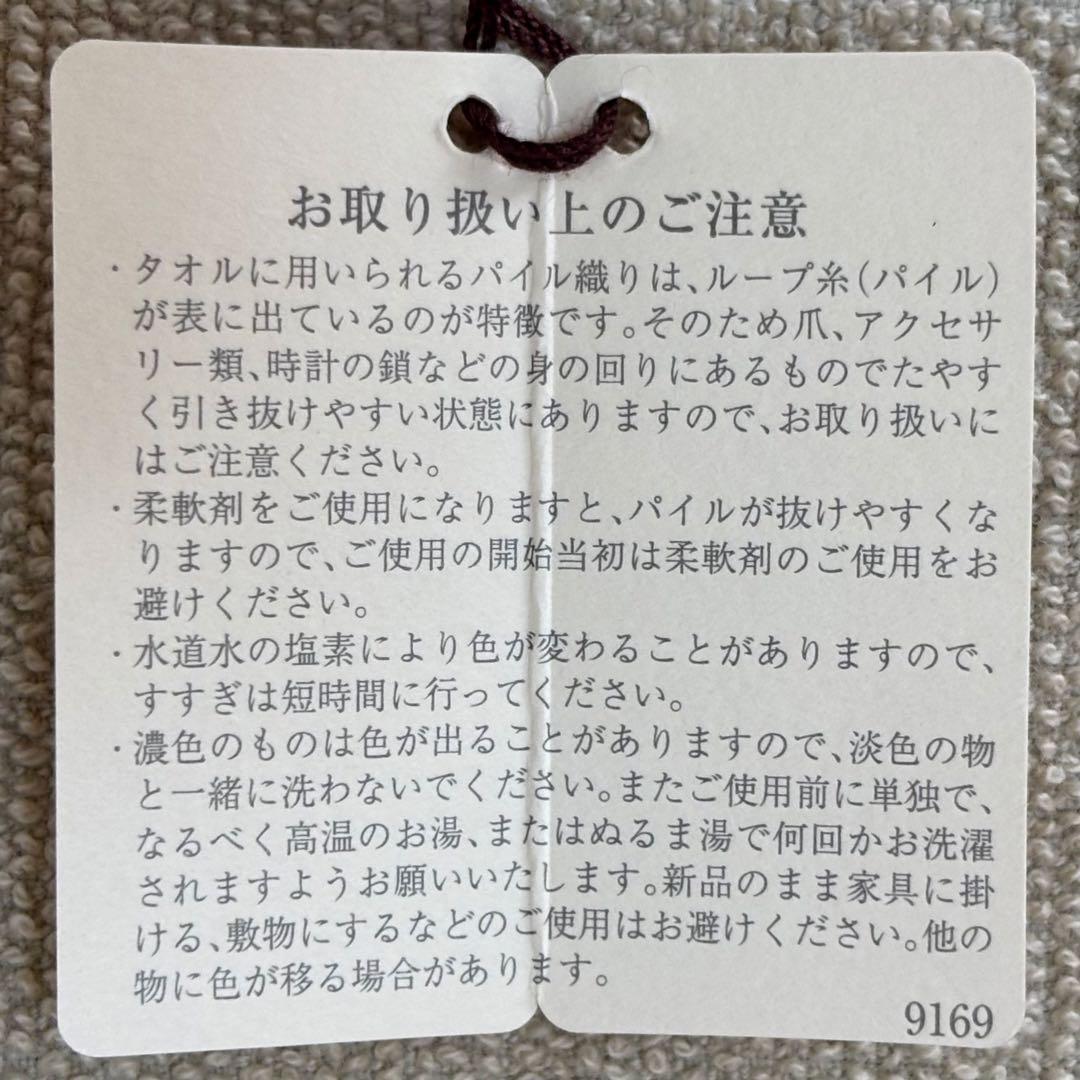 お取り扱い上のご注意
・タオルに用いられるパイル織りは、ループ糸(パイル)
が表に出ているのが特徴です。そのため爪、アクセサ
リー類、時計の鎖などの身の回りにあるものでたやす
く引き抜けやすい状態にありますので、お取り扱いに
はご注意ください。
・柔軟剤をご使用になりますと、パイルが抜けやすくな
りますので、ご使用の開始当初は柔軟剤のご使用をお
避けください。
・水道水の塩素により色が変わることがありますので、
すすぎは短時間に行ってください。
・濃色のものは色が出ることがありますので、淡色の物
と一緒に洗わないでください。またご使用前に単独で、
なるべく高温のお湯、またはぬるま湯で何回かお洗濯
されますようお願いいたします。新品のまま家具に掛
ける、敷物にするなどのご使用はお避けください。他の
物に色が移る場合があります。
9169